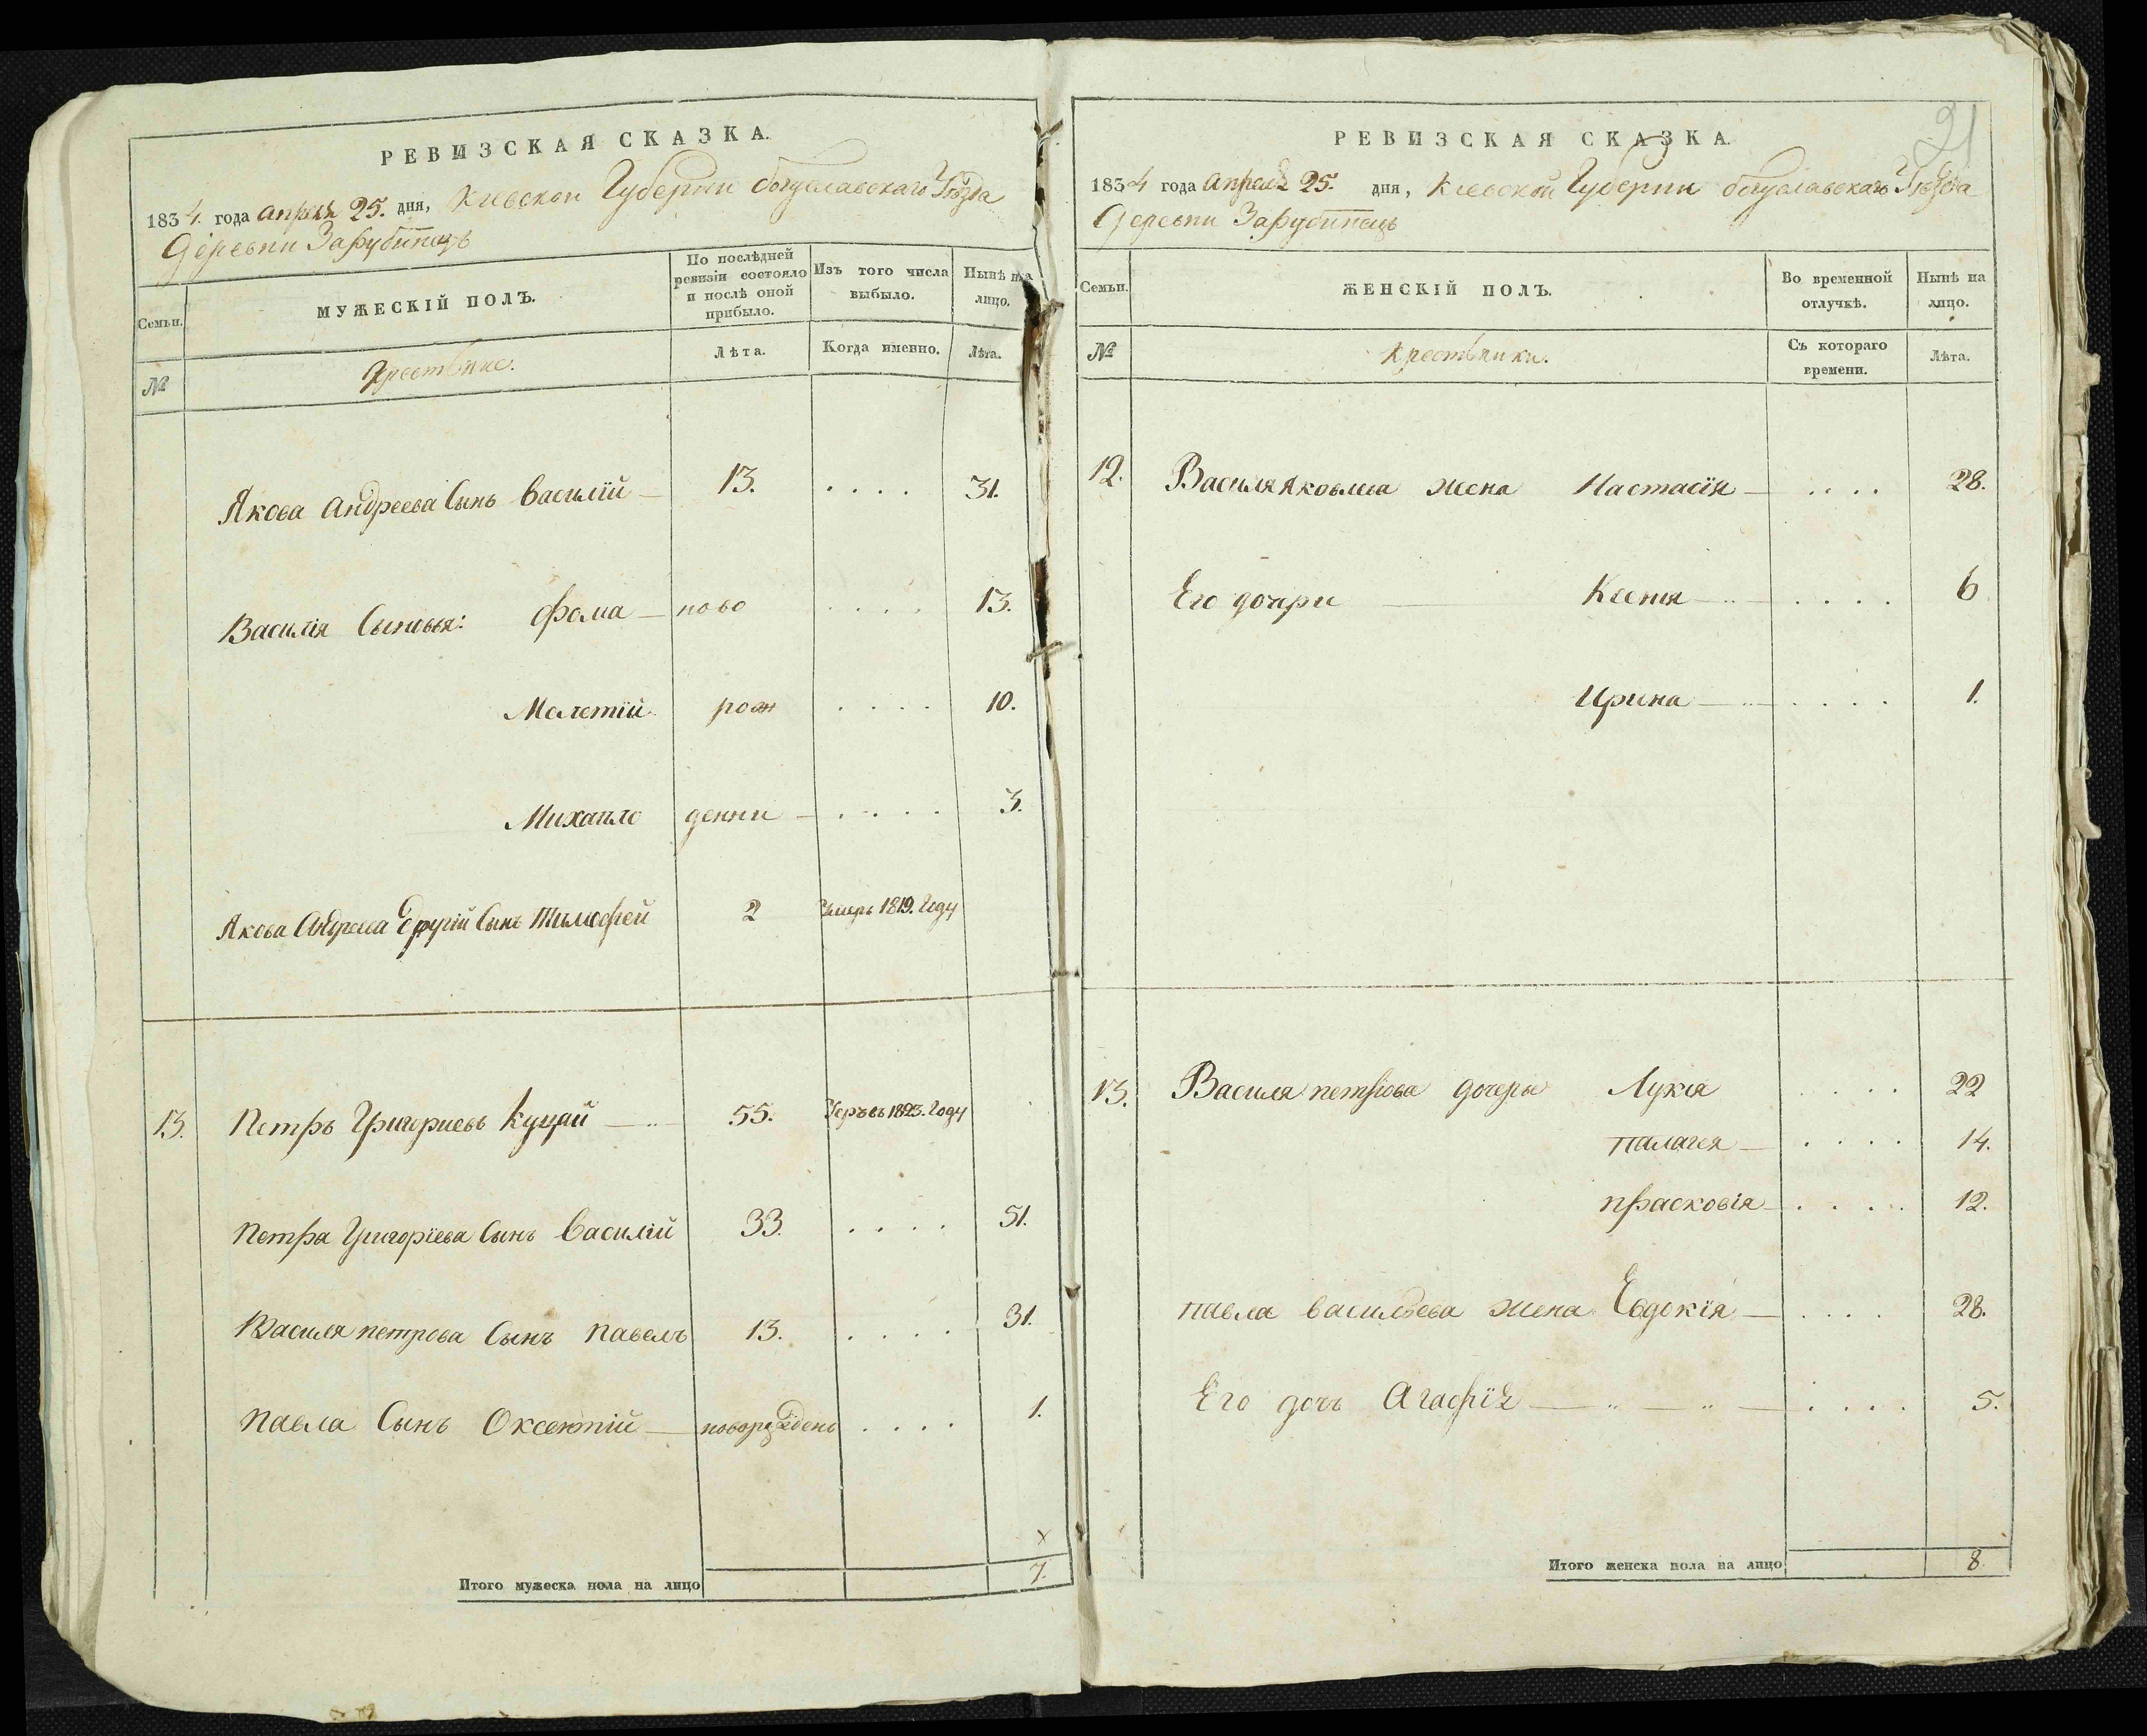 РЕВИЗСКАЯ СКАЗКА.
1834. года апреля 25. дня, Киевской Губернии богуславскаго Уѣзда
Деревни Зарубинецъ
Семьи.
МУЖЕСКІЙ ПОЛЪ.
По послѣдней ревизіи состояло и послѣ оной прибыло.
Изъ того числа выбыло.
Нынѣ на лицо.
№
Крестьяне.
Лѣта.
Когда именно.
Лѣта.
Якова Андреева Сынъ Василій — 13. .... 31.
Василія Сыновья: Фома — ново .... 13.
Мелетій рож .... 10.
Михайло денни — .... 3.
Якова Андреева Другій Сынъ Тимофей 2 Умеръ 1819. Году
13. Петръ Григориевъ Куцай — 55. 1823. Году
Петра Григоріева Сынъ Василій 33. .... 51.
Василя петрова Сынъ Павелъ 13. .... 31.
Павла Сынъ Оксентій — новорожденъ .... 1.
Итого мужеска пола на лицо 7.
21
РЕВИЗСКАЯ СКАЗКА.
1834 года апреля 25. дня, Киевской Губернии богуславскаго Уѣзда
Деревни Зарубинецъ
Семьи.
ЖЕНСКІЙ ПОЛЪ.
Во временной отлучкѣ.
Нынѣ на лицо.
№
Крестьянки.
Съ котораго времени.
Лѣта.
12. Василя Яковлева жена Настасія — .... 28.
Его дочери — Ксения — .... 6
Ирина — .... 1.
13. Василя петрова дочеры Лукия .... 22
Палагея — .... 14.
прасковія — .... 12.
павла васильева жена Евдокія — .... 28.
Его дочь Агафія — .... 5.
Итого женска пола на лицо 8.